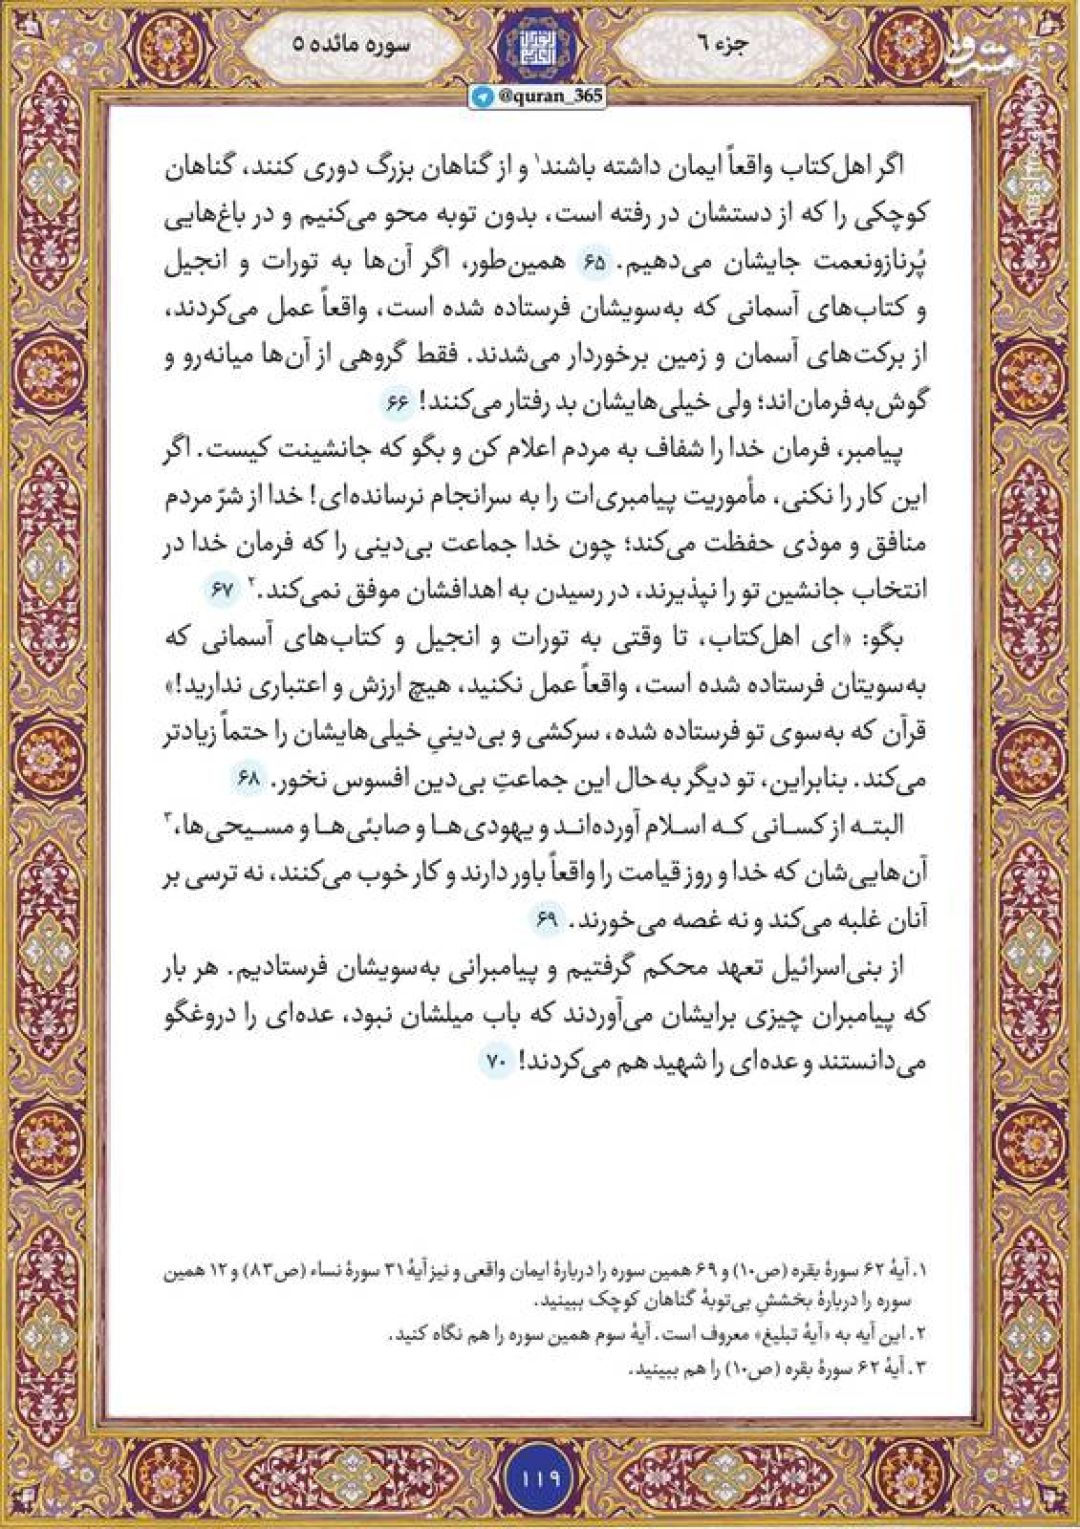 جزء ۶
سوره مائده ۵
@quran_365
مشرق
mashreghnews.ir
اگر اهل‌کتاب واقعاً ایمان داشته باشند۱ و از گناهان بزرگ دوری کنند، گناهان
کوچکی را که از دستشان در رفته است، بدون توبه محو می‌کنیم و در باغ‌هایی
پُرنازونعمت جایشان می‌دهیم. ۶۵ همین‌طور، اگر آن‌ها به تورات و انجیل
و کتاب‌های آسمانی که به‌سویشان فرستاده شده است، واقعاً عمل می‌کردند،
از برکت‌های آسمان و زمین برخوردار می‌شدند. فقط گروهی از آن‌ها میانه‌رو و
گوش‌به‌فرمان‌اند؛ ولی خیلی‌هایشان بد رفتار می‌کنند! ۶۶
پیامبر، فرمان خدا را شفاف به مردم اعلام کن و بگو که جانشینت کیست. اگر
این کار را نکنی، مأموریت پیامبری‌ات را به سرانجام نرسانده‌ای! خدا از شرّ مردم
منافق و موذی حفظت می‌کند؛ چون خدا جماعت بی‌دینی را که فرمان خدا در
انتخاب جانشین تو را نپذیرند، در رسیدن به اهدافشان موفق نمی‌کند.۲ ۶۷
بگو: «ای اهل‌کتاب، تا وقتی به تورات و انجیل و کتاب‌های آسمانی که
به‌سویتان فرستاده شده است، واقعاً عمل نکنید، هیچ ارزش و اعتباری ندارید!»
قرآن که به‌سوی تو فرستاده شده، سرکشی و بی‌دینیِ خیلی‌هایشان را حتماً زیادتر
می‌کند. بنابراین، تو دیگر به‌حال این جماعتِ بی‌دین افسوس نخور. ۶۸
البته از کسانی که اسلام آورده‌اند و یهودی‌ها و صابئی‌ها و مسیحی‌ها،۳
آن‌هایی‌شان که خدا و روز قیامت را واقعاً باور دارند و کار خوب می‌کنند، نه ترسی بر
آنان غلبه می‌کند و نه غصه می‌خورند. ۶۹
از بنی‌اسرائیل تعهد محکم گرفتیم و پیامبرانی به‌سویشان فرستادیم. هر بار
که پیامبران چیزی برایشان می‌آوردند که باب میلشان نبود، عده‌ای را دروغگو
می‌دانستند و عده‌ای را شهید هم می‌کردند! ۷۰
۱. آیهٔ ۶۲ سورهٔ بقره (ص۱۰) و ۶۹ همین سوره را دربارهٔ ایمان واقعی و نیز آیهٔ ۳۱ سورهٔ نساء (ص۸۳) و ۱۲ همین
سوره را دربارهٔ بخششِ بی‌توبهٔ گناهان کوچک ببینید.
۲. این آیه به «آیهٔ تبلیغ» معروف است. آیهٔ سوم همین سوره را هم نگاه کنید.
۳. آیهٔ ۶۲ سورهٔ بقره (ص۱۰) را هم ببینید.
۱۱۹